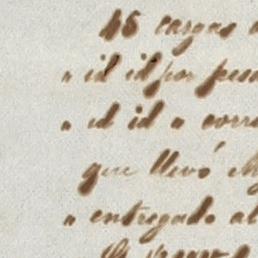 45 cargas
" id id por pesa
" id id a corre
que llevó M
" entregado al